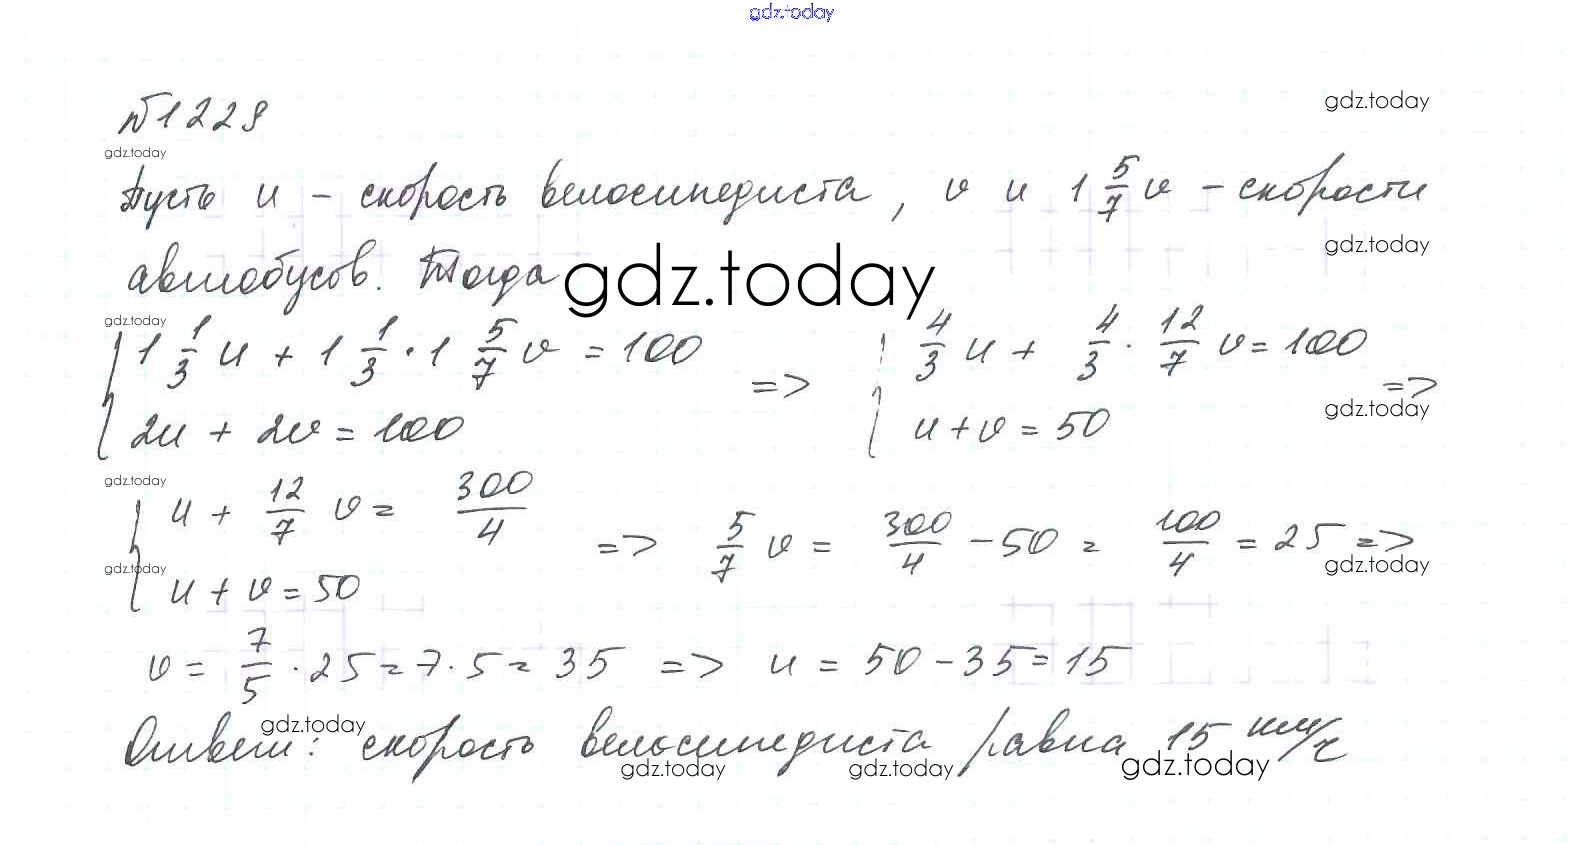 gdz.today
№1229
gdz.today
gdz.today
Пусть u – скорость велосипедиста, v и 1 5/7 v – скорости
gdz.today
автобусов. Тогда
gdz.today
gdz.today
{ 1 1/3 u + 1 1/3 · 1 5/7 v = 100 => { 4/3 u + 4/3 · 12/7 v = 100 =>
2u + 2v = 100 u + v = 50
gdz.today
gdz.today
{ u + 12/7 v = 300/4 => 5/7 v = 300/4 – 50 = 100/4 = 25 =>
u + v = 50
gdz.today
gdz.today
v = 7/5 · 25 = 7 · 5 = 35 => u = 50 – 35 = 15
gdz.today
Ответ: скорость велосипедиста равна 15 км/ч
gdz.today gdz.today gdz.today